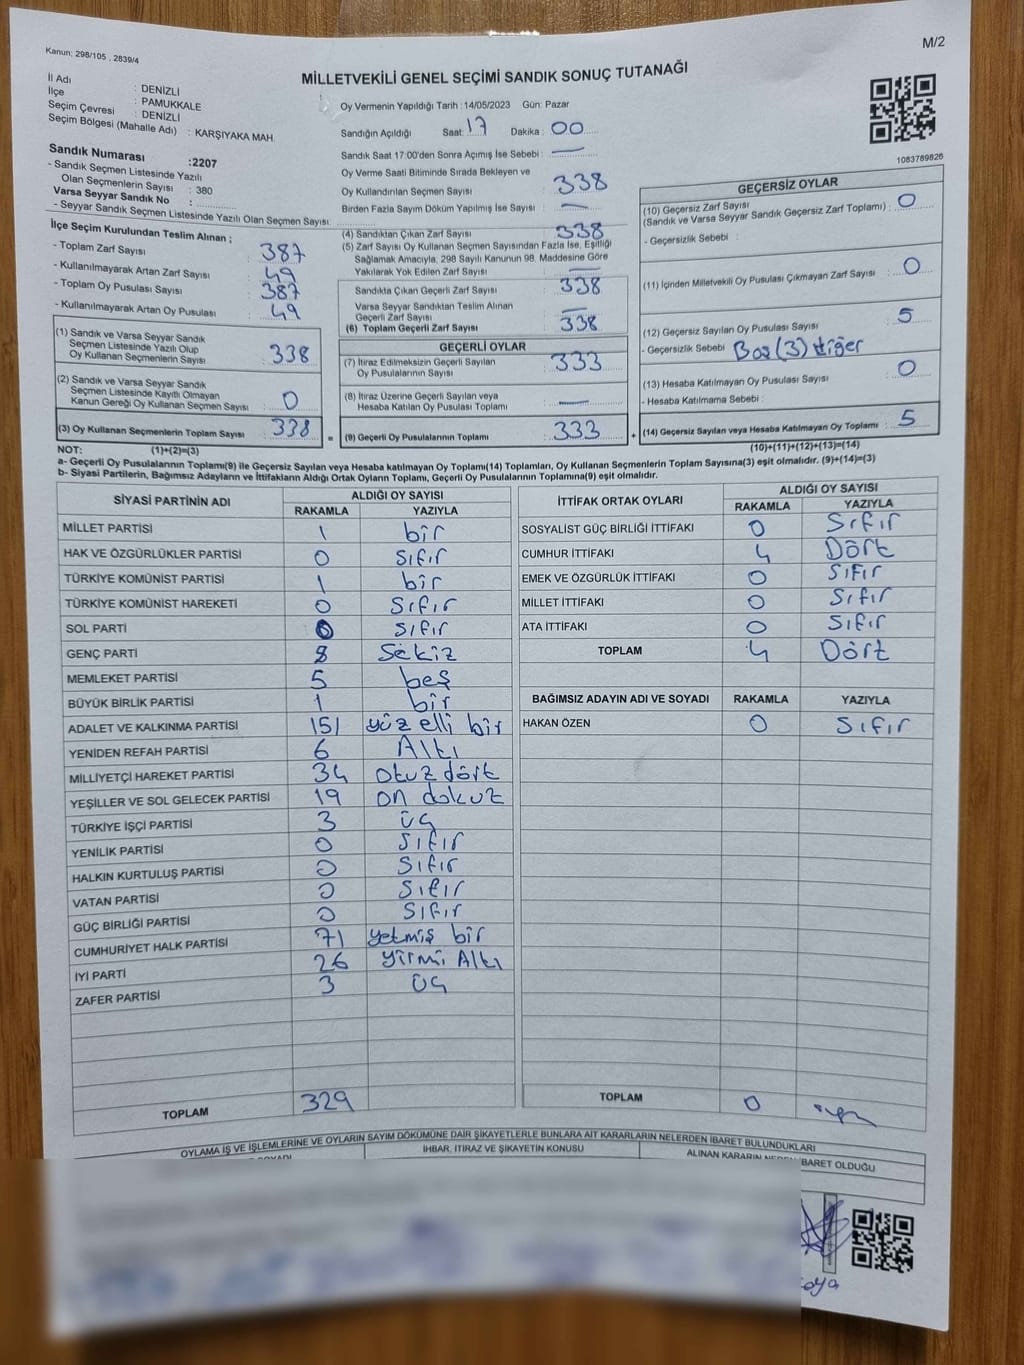 Kanun: 298/105 , 2839/4
M/2
MİLLETVEKİLİ GENEL SEÇİMİ SANDIK SONUÇ TUTANAĞI
İl Adı : DENİZLİ
İlçe : PAMUKKALE
Seçim Çevresi : DENİZLİ
Seçim Bölgesi (Mahalle Adı) : KARŞIYAKA MAH.
Sandık Numarası :2207
- Sandık Seçmen Listesinde Yazılı
Olan Seçmenlerin Sayısı : 380
Varsa Seyyar Sandık No :
- Seyyar Sandık Seçmen Listesinde Yazılı Olan Seçmen Sayısı:
İlçe Seçim Kurulundan Teslim Alınan ;
- Toplam Zarf Sayısı : 387
- Kullanılmayarak Artan Zarf Sayısı : 49
- Toplam Oy Pusulası Sayısı : 387
- Kullanılmayarak Artan Oy Pusulası : 49
(1) Sandık ve Varsa Seyyar Sandık
Seçmen Listesinde Yazılı Olup
Oy Kullanan Seçmenlerin Sayısı : 338
(2) Sandık ve Varsa Seyyar Sandık
Seçmen Listesinde Kayıtlı Olmayan
Kanun Gereği Oy Kullanan Seçmen Sayısı : 0
(3) Oy Kullanan Seçmenlerin Toplam Sayısı : 338
Oy Vermenin Yapıldığı Tarih :14/05/2023 Gün: Pazar
Sandığın Açıldığı Saat: 17 Dakika : 00
Sandık Saat 17:00'den Sonra Açımış İse Sebebi : —
Oy Verme Saati Bitiminde Sırada Bekleyen ve
Oy Kullandırılan Seçmen Sayısı : 338
Birden Fazla Sayım Döküm Yapılmış İse Sayısı : —
(4) Sandıktan Çıkan Zarf Sayısı : 338
(5) Zarf Sayısı Oy Kullanan Seçmen Sayısından Fazla İse, Eşitliği
Sağlamak Amacıyla, 298 Sayılı Kanunun 98. Maddesine Göre
Yakılarak Yok Edilen Zarf Sayısı : —
Sandıkta Çıkan Geçerli Zarf Sayısı : 338
Varsa Seyyar Sandıktan Teslim Alınan
Geçerli Zarf Sayısı : —
(6) Toplam Geçerli Zarf Sayısı : 338
GEÇERLİ OYLAR
(7) İtiraz Edilmeksizin Geçerli Sayılan
Oy Pusulalarının Sayısı : 333
(8) İtiraz Üzerine Geçerli Sayılan veya
Hesaba Katılan Oy Pusulası Toplamı : —
= (9) Geçerli Oy Pusulalarının Toplamı : 333 +
1083789826
GEÇERSİZ OYLAR
(10) Geçersiz Zarf Sayısı
(Sandık ve Varsa Seyyar Sandık Geçersiz Zarf Toplamı) : 0
- Geçersizlik Sebebi :
(11) İçinden Milletvekili Oy Pusulası Çıkmayan Zarf Sayısı : 0
(12) Geçersiz Sayılan Oy Pusulası Sayısı : 5
- Geçersizlik Sebebi : Boş (3) diğer
(13) Hesaba Katılmayan Oy Pusulası Sayısı : 0
- Hesaba Katılmama Sebebi :
(14) Geçersiz Sayılan veya Hesaba Katılmayan Oy Toplamı : 5
NOT: (1)+(2)=(3) (10)+(11)+(12)+(13)=(14)
a- Geçerli Oy Pusulalarının Toplamı(9) ile Geçersiz Sayılan veya Hesaba katılmayan Oy Toplamı(14) Toplamları, Oy Kullanan Seçmenlerin Toplam Sayısına(3) eşit olmalıdır. (9)+(14)=(3)
b- Siyasi Partilerin, Bağımsız Adayların ve İttifakların Aldığı Ortak Oyların Toplamı, Geçerli Oy Pusulalarının Toplamına(9) eşit olmalıdır.
SİYASİ PARTİNİN ADI ALDIĞI OY SAYISI
RAKAMLA YAZIYLA
MİLLET PARTİSİ 1 bir
HAK VE ÖZGÜRLÜKLER PARTİSİ 0 sıfır
TÜRKİYE KOMÜNİST PARTİSİ 1 bir
TÜRKİYE KOMÜNİST HAREKETİ 0 sıfır
SOL PARTİ 0 sıfır
GENÇ PARTİ 8 Sekiz
MEMLEKET PARTİSİ 5 beş
BÜYÜK BİRLİK PARTİSİ 1 bir
ADALET VE KALKINMA PARTİSİ 151 yüz elli bir
YENİDEN REFAH PARTİSİ 6 Altı
MİLLİYETÇİ HAREKET PARTİSİ 34 otuz dört
YEŞİLLER VE SOL GELECEK PARTİSİ 19 on dokuz
TÜRKİYE İŞÇİ PARTİSİ 3 üç
YENİLİK PARTİSİ 0 sıfır
HALKIN KURTULUŞ PARTİSİ 0 sıfır
VATAN PARTİSİ 0 sıfır
GÜÇ BİRLİĞİ PARTİSİ 0 sıfır
CUMHURİYET HALK PARTİSİ 71 yetmiş bir
İYİ PARTİ 26 yirmi Altı
ZAFER PARTİSİ 3 üç
TOPLAM 329
İTTİFAK ORTAK OYLARI ALDIĞI OY SAYISI
RAKAMLA YAZIYLA
SOSYALİST GÜÇ BİRLİĞİ İTTİFAKI 0 Sıfır
CUMHUR İTTİFAKI 4 Dört
EMEK VE ÖZGÜRLÜK İTTİFAKI 0 sıfır
MİLLET İTTİFAKI 0 sıfır
ATA İTTİFAKI 0 sıfır
TOPLAM 4 Dört
BAĞIMSIZ ADAYIN ADI VE SOYADI RAKAMLA YAZIYLA
HAKAN ÖZEN 0 Sıfır
TOPLAM 0
OYLAMA İŞ VE İŞLEMLERİNE VE OYLARIN SAYIM DÖKÜMÜNE DAİR ŞİKAYETLERLE BUNLARA AİT KARARLARIN NELERDEN İBARET BULUNDUKLARI
İHBAR, İTİRAZ VE ŞİKAYETİN KONUSU
ALINAN KARARIN NEDEN İBARET OLDUĞU